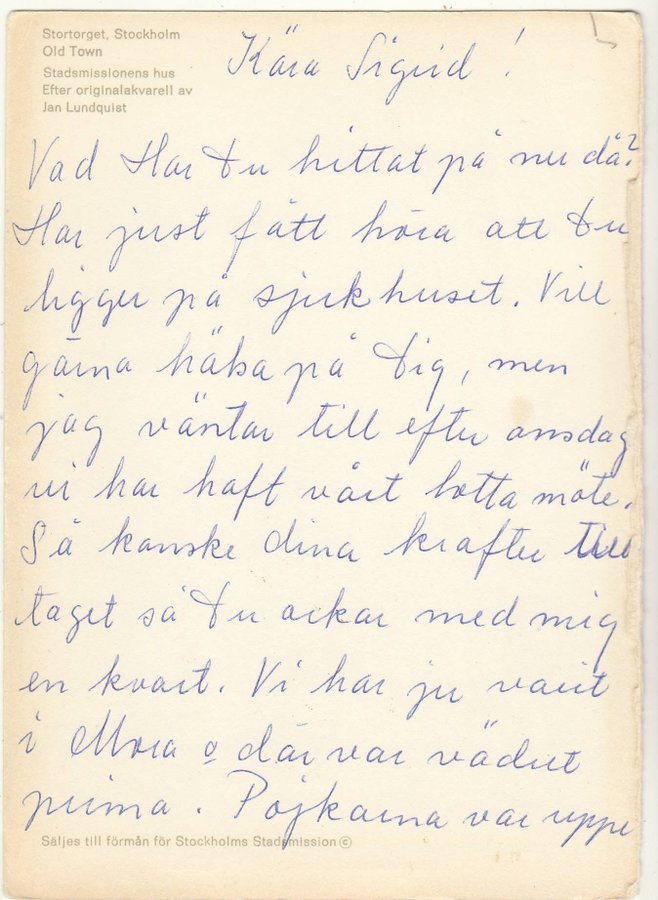 Stortorget, Stockholm
Old Town
Stadsmissionens hus
Efter originalakvarell av
Jan Lundquist
Kära Sigrid!
Vad Har Du hittat på nu då?
Har just fått höra att Du
ligger på sjukhuset. Vill
gärna hälsa på Dig, men
jag väntar till efter onsdag
vi har haft vårt lotta möte.
Så kanske dina krafter till
taget så Du orkar med mig
en kvart. Vi har ju varit
i Mora o där var vädret
prima. Pojkarna var uppe
Säljes till förmån för Stockholms Stadsmission ©